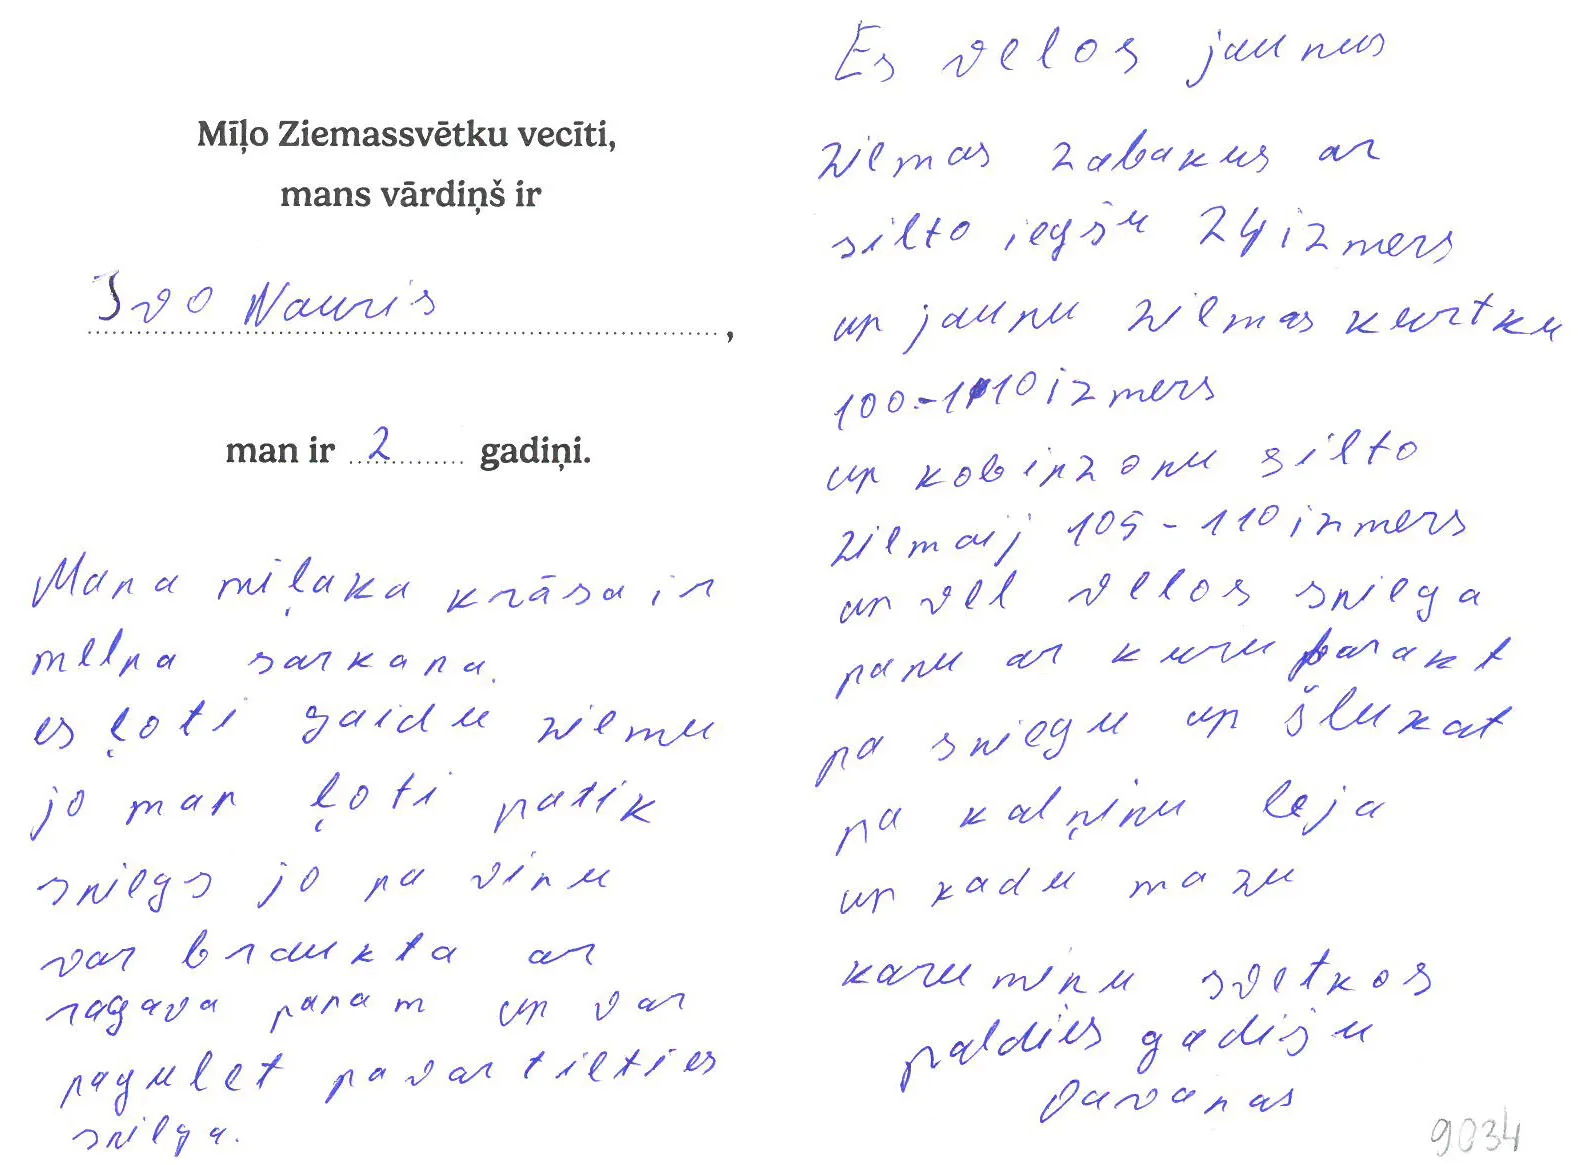 Mīļo Ziemassvētku vecīti,
mans vārdiņš ir
Ivo Nauris,
man ir 2 gadiņi.
Mana miļaka krāsa ir
melna sarkana.
es ļoti gaidu ziemu
jo man ļoti patik
sniegs jo pa vinu
var braukta ar
ragava panam un var
pagulet pavartilties
sniega.
Es velos jaunus
ziemas zabakus ar
silto iegšu 24 izmers
un jaunu ziemas kurtku
100-110 izmers
un kobinzonu silto
ziemaij 105-110 izmers
un vel velos sniega
panu ar kuru parakt
pa sniegu un šlukat
pa kalņinu leja
un kadu mazu
karuminu svetkos
paldies gadišu
Davanas
9034